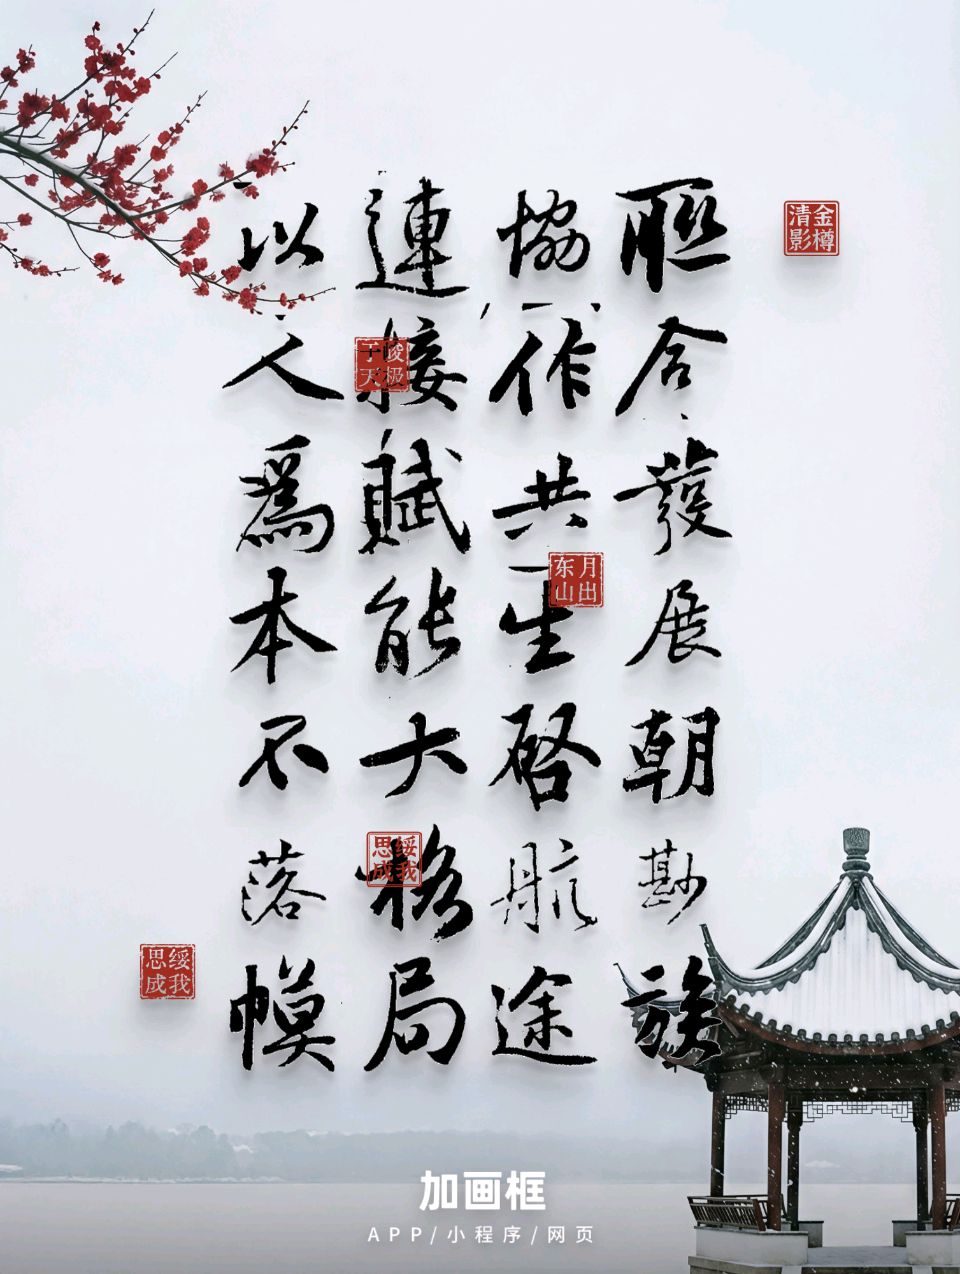 聯合發展朝勘族
協作共生启航途
連接賦能大格局
以人爲本不落幙
金樽清影
峻极于天
月出东山
绥我思成
绥我思成
加画框
APP/小程序/网页